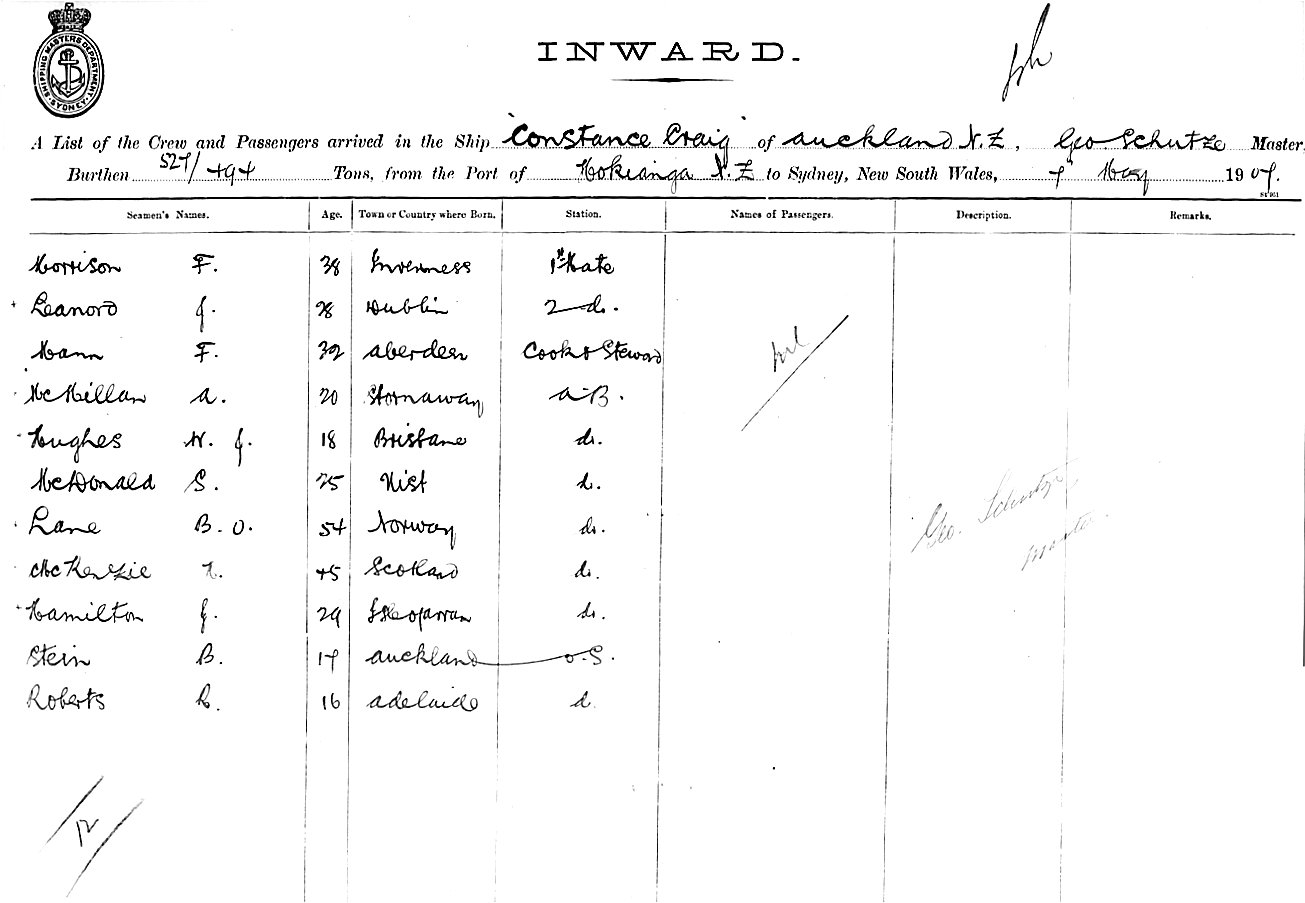 SHIPPING MASTERS DEPARTMENT SYDNEY
INWARD.
A List of the Crew and Passengers arrived in the Ship "Constance Craig" of Auckland N.Z, Geo Schutze Master
Burthen 527/494 Tons, from the Port of Hokianga N.Z to Sydney, New South Wales, 7 May 1907.
Seamen's Names. Age. Town or Country where Born. Station. Names of Passengers. Description. Remarks.
Morrison F. 38 Inverness 1st Mate
Leanord J. 28 Dublin 2 do.
Mann F. 32 Aberdeen Cook & Steward
McMillan A. 20 Stornaway A B.
Hughes W. J. 18 Brisbane do.
McDonald S. 25 Uist do.
Lane B. O. 54 Norway do.
McKenzie 45 Scotland do.
Hamilton J. 29 Isle of Arran do.
Stein B. 17 Auckland O.S.
Roberts R. 16 Adelaide do
nil
Geo. Schutze
Master
12